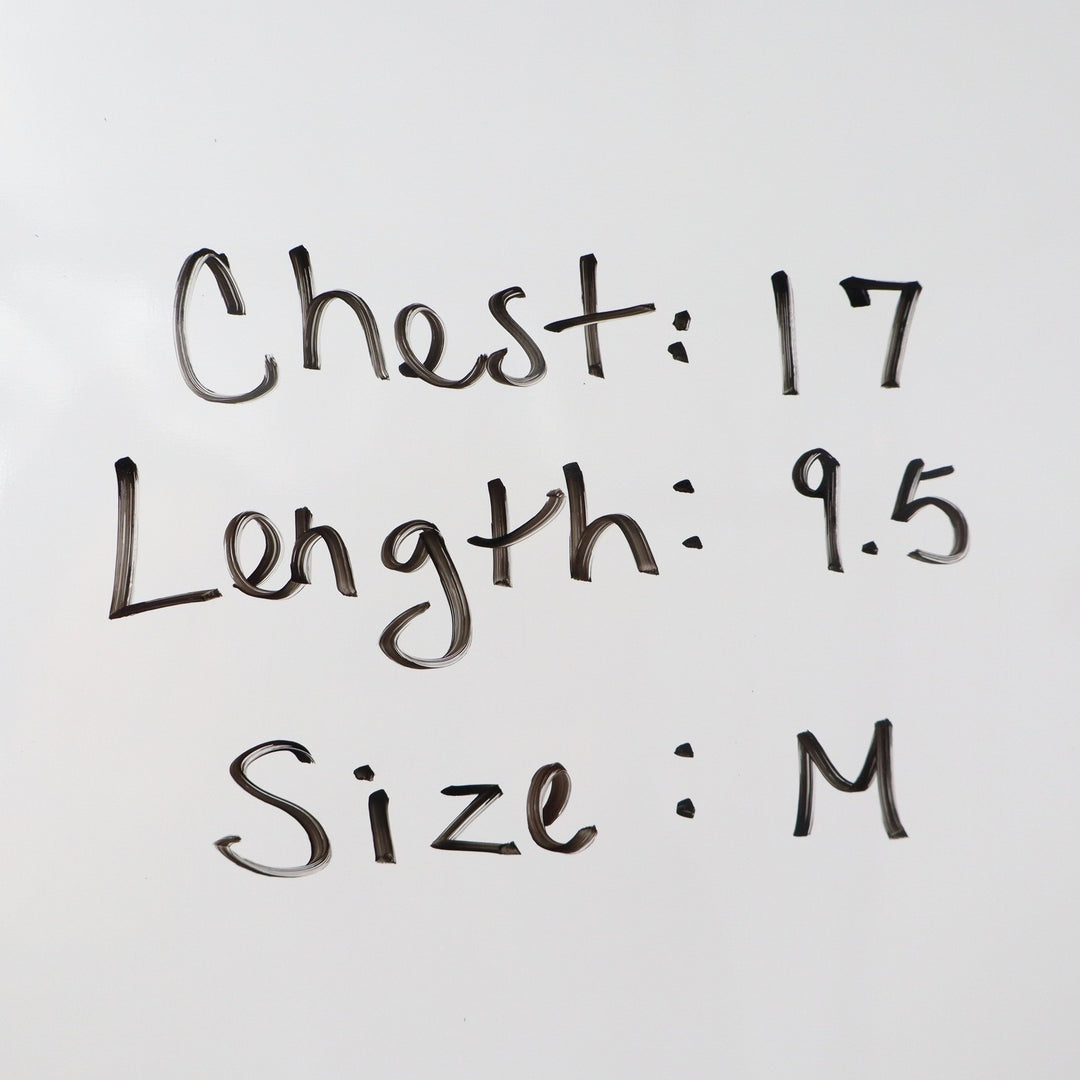 Chest: 17
Length: 9.5
Size: M